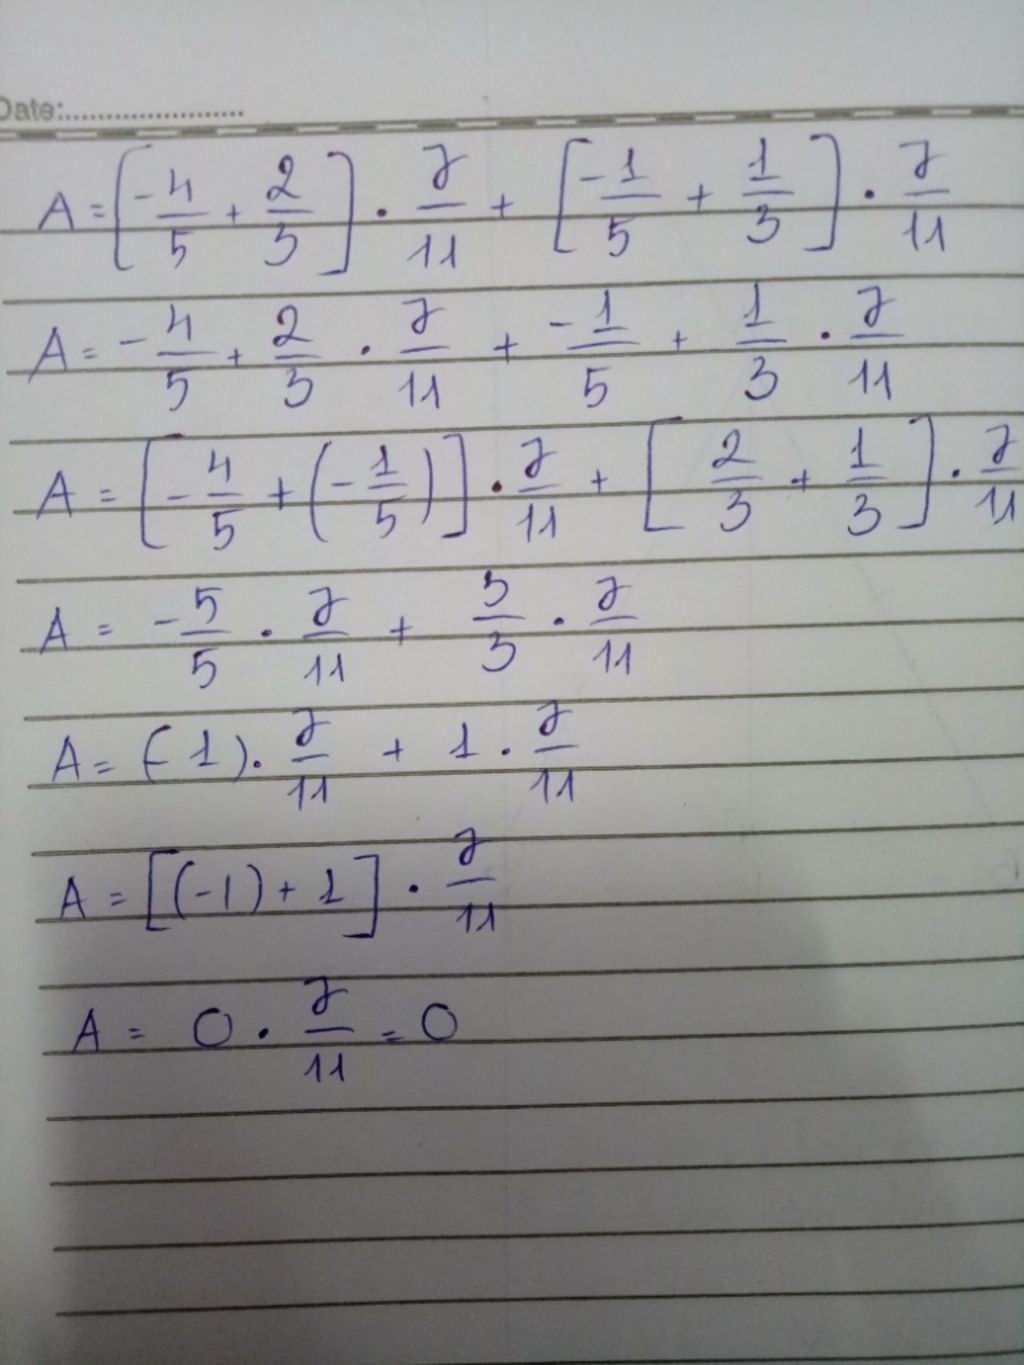 Date:......................
A = [-4/5 + 2/3] . 7/11 + [-1/5 + 1/3] . 7/11
A = -4/5 + 2/3 . 7/11 + -1/5 + 1/3 . 7/11
A = [-4/5 + (-1/5)] . 7/11 + [2/3 + 1/3] . 7/11
A = -5/5 . 7/11 + 3/3 . 7/11
A = (-1) . 7/11 + 1 . 7/11
A = [(-1) + 1] . 7/11
A = 0 . 7/11 = 0